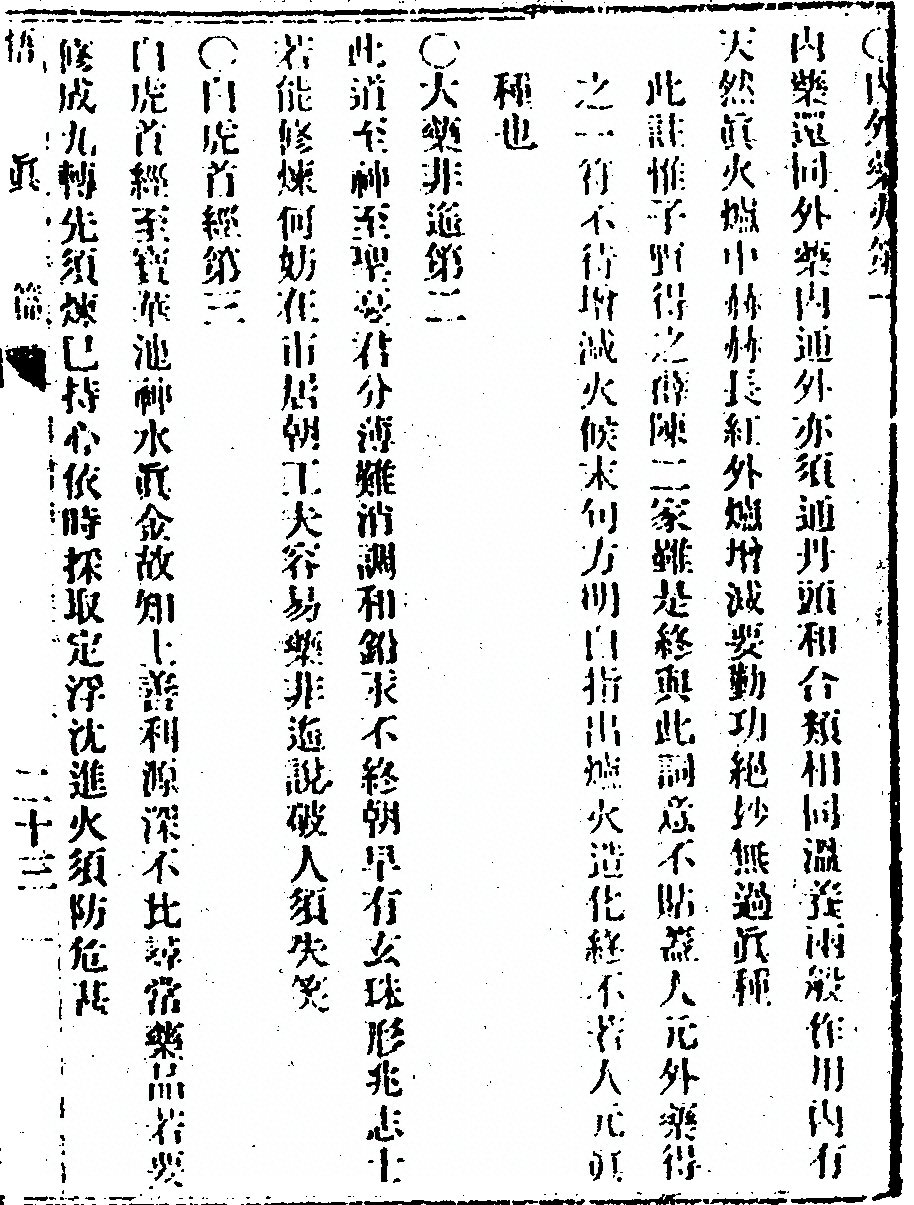 ○內外藥火第一
內藥還同外藥內通外亦須通丹頭和合類相同溫養兩般作用內有
天然眞火爐中赫赫長紅外爐增減要勤功絕妙無過眞種
此註惟子野得之薛陳二家雖是終與此詞意不貼蓋人元外藥得
之一符不待增減火候末句方明白指出爐火造化終不若人元眞
種也
○大藥非遙第二
此道至神至聖憂君分薄難消調和鉛汞不終朝早有玄珠形兆志士
若能修煉何妨在市居朝工夫容易藥非遙說破人須失笑
○白虎首經第三
白虎首經至寶華池神水眞金故知上善利源深不比尋常藥品若要
修成九轉先須煉己持心依時採取定浮沈進火須防危甚
悟眞篇
二十三